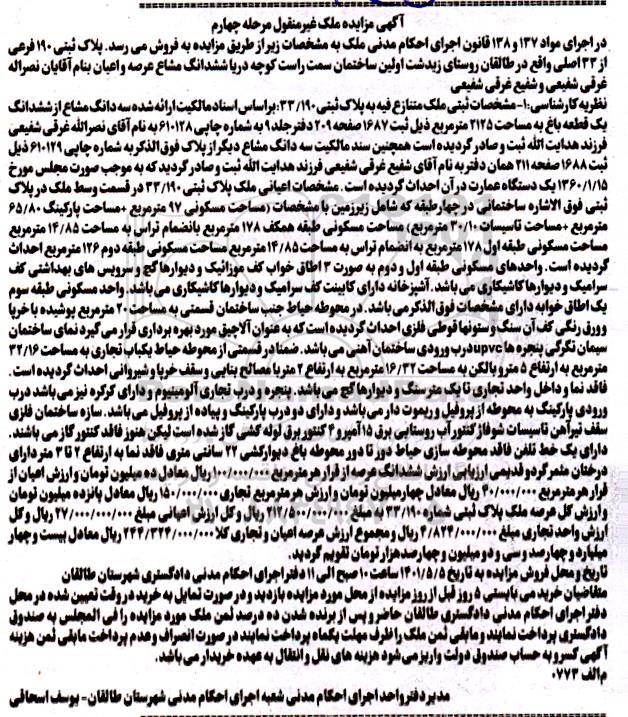 آگهی مزایده ملک غیرمنقول مرحله چهارم
در اجرای مواد ۱۳۷ و ۱۳۸ قانون اجرای احکام مدنی ملک به مشخصات زیر از طریق مزایده به فروش می رسد. پلاک ثبتی ۱۹۰ فرعی
از ۳۳ اصلی واقع در طالقان روستای زیدشت اولین ساختمان سمت راست کوچه دریا ششدانگ مشاع عرصه و اعیان بنام آقایان نصراله
غرقی شفیعی و شفیع غرقی شفیعی
نظریه کارشناسی: ۱- مشخصات ثبتی ملک متنازع فیه به پلاک ثبتی ۳۳/۱۹۰: براساس اسناد مالکیت ارائه شده سه دانگ مشاع از ششدانگ
یک قطعه باغ به مساحت ۲۱۲۵ مترمربع ذیل ثبت ۱۶۸۷ صفحه ۲۰۹ دفتر جلد ۹ به شماره چاپی ۶۱۰۱۲۸ به نام آقای نصرالله غرقی شفیعی
فرزند هدایت الله ثبت و صادر گردیده است همچنین سند مالکیت سه دانگ مشاع دیگر از پلاک فوق الذکر به شماره چاپی ۶۱۰۱۲۹ ذیل
ثبت ۱۶۸۸ صفحه ۲۱۱ همان دفتر به نام آقای شفیع غرقی شفیعی فرزند هدایت الله ثبت و صادر گردید که به موجب صورت مجلس مورخ
۱۳۶۰/۱/۱۵ یک دستگاه عمارت در آن احداث گردیده است. مشخصات اعیانی ملک پلاک ثبتی ۳۳/۱۹۰ در قسمت وسط ملک در پلاک
ثبتی فوق الاشاره ساختمانی در چهار طبقه که شامل زیرزمین با مشخصات (مساحت مسکونی ۹۷ مترمربع +مساحت پارکینگ ۶۵/۸۰
مترمربع +مساحت تاسیسات ۳۰/۱۰ مترمربع) مساحت مسکونی طبقه همکف ۱۷۸ مترمربع بانضمام تراس به مساحت ۱۴/۸۵ مترمربع
مساحت مسکونی طبقه اول ۱۷۸ مترمربع به انضمام تراس به مساحت ۱۴/۸۵ مترمربع مساحت مسکونی طبقه دوم ۱۲۶ مترمربع احداث
گردیده است. واحدهای مسکونی طبقه اول و دوم به صورت ۳ اطاق خواب کف موزائیک و دیوارها گچ و سرویس های بهداشتی کف
سرامیک و دیوارها کاشیکاری می باشد. آشپزخانه دارای کابینت کف سرامیک و دیوارها کاشیکاری می باشد. واحد مسکونی طبقه سوم
یک اطاق خوابه دارای مشخصات فوق الذکر می باشد. در محوطه حیاط جنب ساختمان قسمتی به مساحت ۲۰ مترمربع پوشیده با خرپا
و ورق رنگی کف آن سنگ و ستونها قوطی فلزی احداث گردیده است که به عنوان آلاچیق مورد بهره برداری قرار می گیرد نمای ساختمان
سیمان تگرگی پنجره ها upvc درب ورودی ساختمان آهنی می باشد. ضمنا در قسمتی از محوطه حیاط یکباب تجاری به مساحت ۳۲/۱۶
مترمربع به ارتفاع ۵ متر و بالکن به مساحت ۱۶/۳۲ مترمربع به ارتفاع ۲ متر با مصالح بنایی و سقف خرپا و شیروانی احداث گردیده است.
فاقد نما و داخل واحد تجاری تا یک متر سنگ و دیوارها گچ می باشد. پنجره و درب تجاری آلومینیوم و دارای کرکره نیز می باشد درب
ورودی پارکینگ به محوطه از پروفیل و ریموت دار می باشد و دارای دو درب پارکینگ و پیاده از پروفیل می باشد. سازه ساختمان فلزی
سقف تیرآهن تاسیسات شوفاژ کنتور آب روستایی برق ۱۵آمپر و ۴ کنتور برق لوله کشی گاز شده است لیکن هنوز فاقد کنتور گاز می باشند.
دارای یک خط تلفن فاقد محوطه سازی حیاط دور تا دور محوطه باغ دیوارکشی ۲۲ سانتی متری فاقد نما به ارتفاع ۲ تا ۳ متر دارای
درختان مثمر گردو قدیمی ارزیابی ارزش ششدانگ عرصه از قرار هر مترمربع ۱۰۰/۰۰۰/۰۰۰ ریال معادل ده میلیون تومان و ارزش اعیان از
قرار هر مترمربع ۴۰/۰۰۰/۰۰۰ ریال معادل چهار میلیون تومان و ارزش هر مترمربع تجاری ۱۵۰/۰۰۰/۰۰۰ ریال معادل پانزده میلیون تومان
و ارزش کل عرصه ملک پلاک ثبتی شماره ۳۳/۱۹۰ به مبلغ ۲۱۲/۵۰۰/۰۰۰/۰۰۰ ریال و کل ارزش اعیانی مبلغ ۲۷/۰۰۰/۰۰۰/۰۰۰ ریال و کل
ارزش واحد تجاری مبلغ ۴/۸۲۴/۰۰۰/۰۰۰ ریال و مجموع ارزش عرصه اعیان و تجاری کلا ۲۴۴/۳۲۴/۰۰۰/۰۰۰ ریال معادل بیست و چهار
میلیارد و چهارصد و سی و دو میلیون و چهارصد هزار تومان تقویم گردید.
تاریخ و محل فروش مزایده به تاریخ ۱۴۰۱/۵/۵ ساعت ۱۰ صبح الی ۱۱ دفتر اجرای احکام مدنی دادگستری شهرستان طالقان
متقاضیان خرید می بایستی ۵ روز قبل از روز مزایده از محل مورد مزایده بازدید و در صورت تمایل به خرید در وقت تعیین شده در محل
دفتر اجرای احکام مدنی دادگستری طالقان حاضر و پس از برنده شدن ده درصد ثمن ملک مورد مزایده را فی المجلس به صندوق
دادگستری پرداخت نمایند و مابقی ثمن ملک را ظرف مهلت یکماه پرداخت نمایند در صورت انصراف و عدم پرداخت مابقی ثمن هزینه
آگهی کسر و به حساب صندوق دولت واریز می شود هزینه های نقل و انتقال به عهده خریدار می باشد.
م الف ۰۷۷۳
مدیر دفتر واحد اجرای احکام مدنی شعبه اجرای احکام مدنی شهرستان طالقان- یوسف اسحاقی